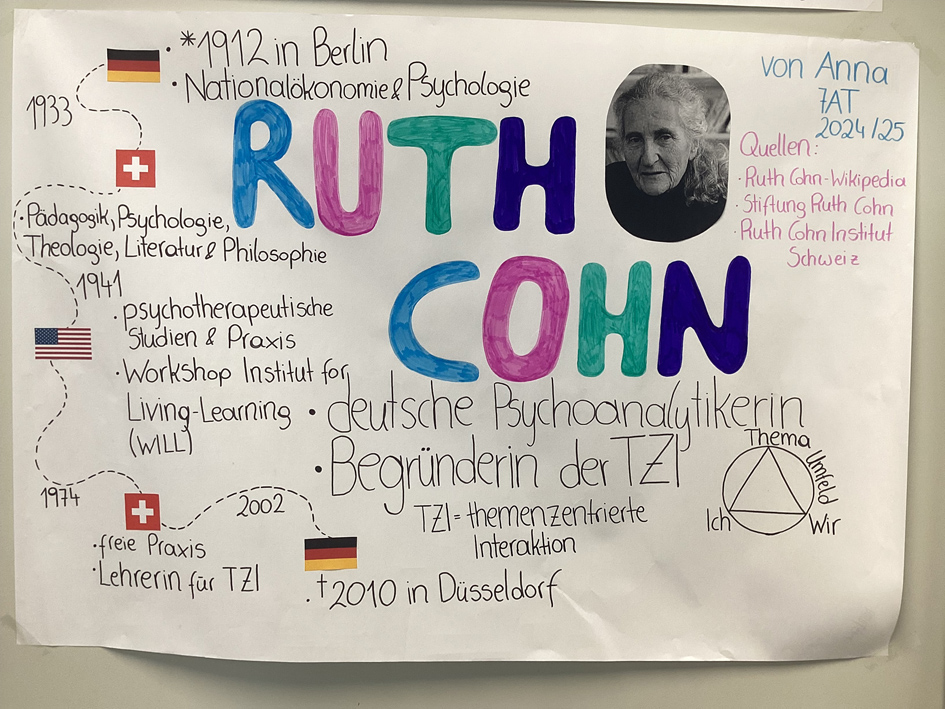 *1912 in Berlin
Nationalökonomie & Psychologie
1933
RUTH
COHN
von Anna
7AT
2024/25
Quellen:
·Ruth Cohn-Wikipedia
·Stiftung Ruth Cohn
·Ruth Cohn Institut
Schweiz
·Pädagogik, Psychologie,
Theologie, Literatur & Philosophie
1941
·psychotherapeutische
Studien & Praxis
·Workshop Institut for
Living-Learning
(WILL)
·deutsche Psychoanalytikerin
·Begründerin der TZI
TZI = themenzentrierte
Interaktion
Thema
Umfeld
Ich
Wir
1974
·freie Praxis
·Lehrerin für TZI
2002
·†2010 in Düsseldorf